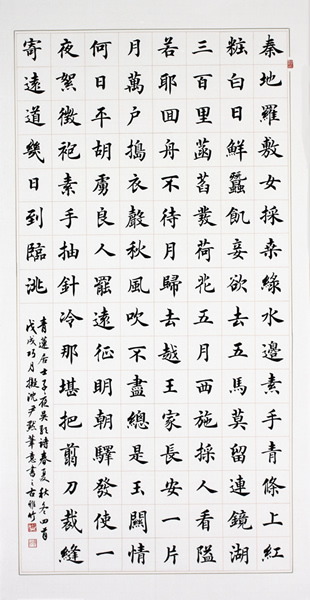 秦地羅敷女採桒綠水邊素手青條上紅
粧白日鮮蠶飢妾欲去五馬莫留連鏡湖
三百里菡萏發荷花五月西施採人看隘
若耶囬舟不待月歸去越王家長安一片
月萬户搗衣聲秋風吹不盡總是玉關情
何日平胡虜良人罷遠征明朝驛發使一
夜絮徵袍素手抽針冷那堪把翦刀裁縫
寄遠道幾日到臨洮
青蓮居士子夜吳歌詩春夏秋冬四首
戊戌巧月擬沈尹默筆意書之古雅竹